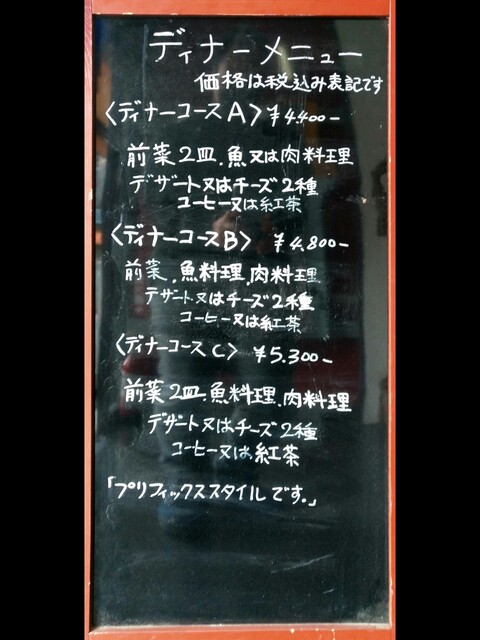 ディナーメニュー
価格は税込み表記です
〈ディナーコースA〉¥4.400-
前菜2皿.魚又は肉料理
デザート又はチーズ2種
コーヒー又は紅茶
〈ディナーコースB〉 ¥4.800-
前菜.魚料理.肉料理
デザート又はチーズ2種
コーヒー又は紅茶
〈ディナーコースC〉 ¥5.300-
前菜2皿.魚料理.肉料理
デザート又はチーズ2種
コーヒー又は紅茶
「プリフィックススタイルです.」